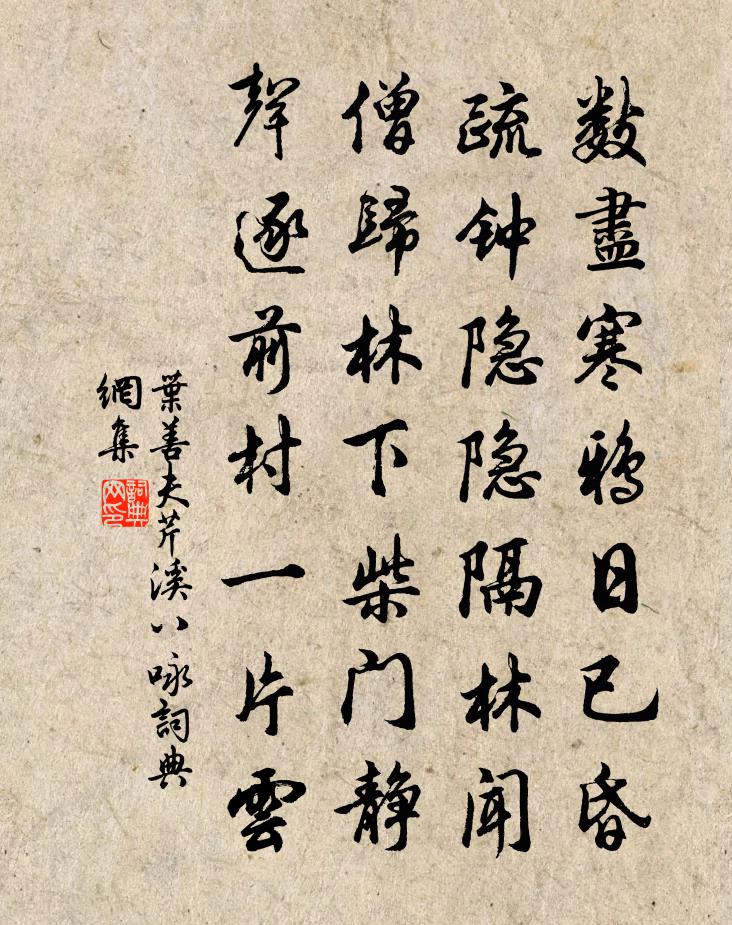 數盡寒鴉日已昏
疏钟隐隐隔林闻
僧歸林下柴门静
犀逐前村一片雲
葉善夫芹溪八咏詞典
網集
詞典
网印